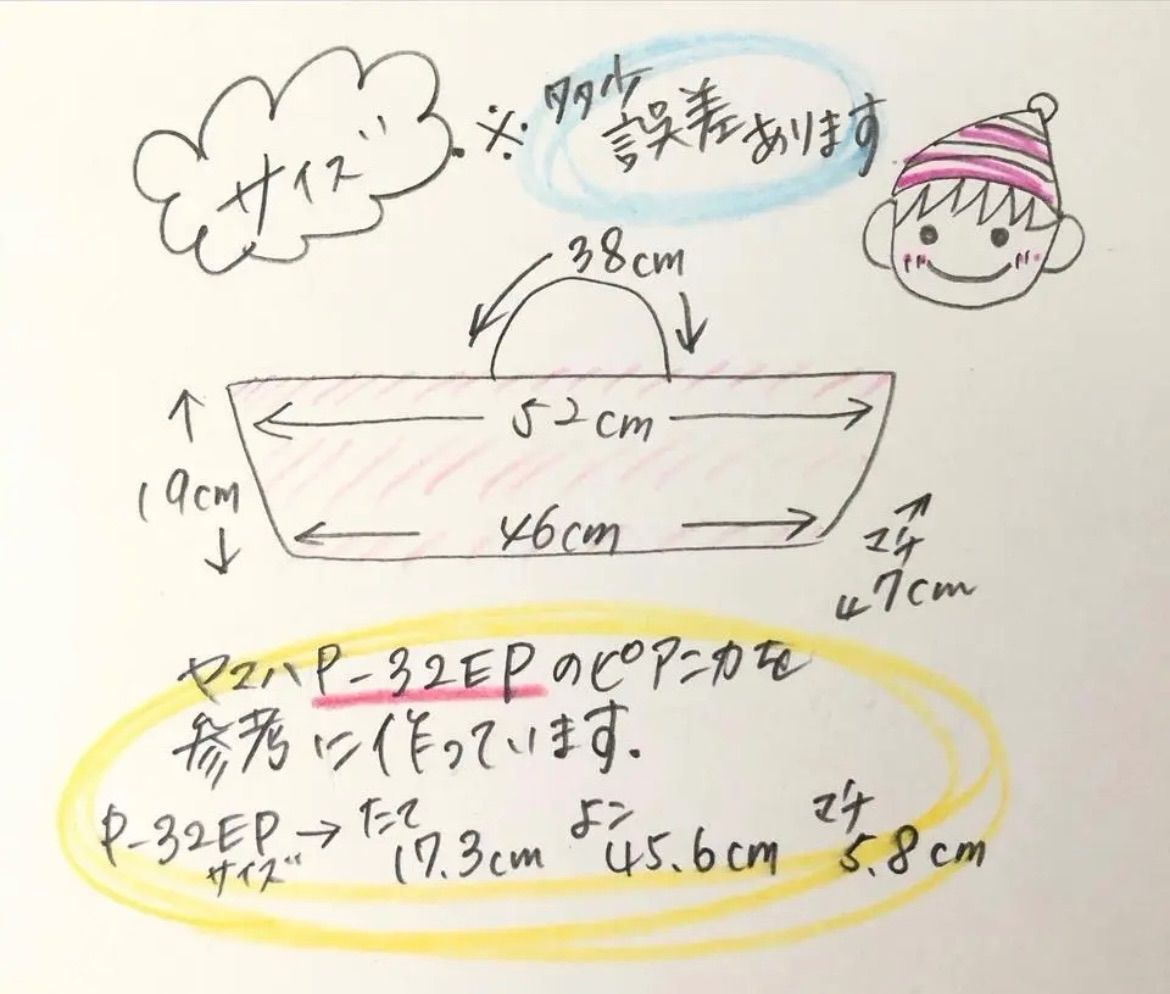 サイズ
※多少
誤差あります
38cm
52cm
19cm
46cm
マチ
7cm
ヤマハP-32EPのピアニカを
参考に作っています.
P-32EP→ たて よこ マチ
サイズ 17.3cm 45.6cm 5.8cm